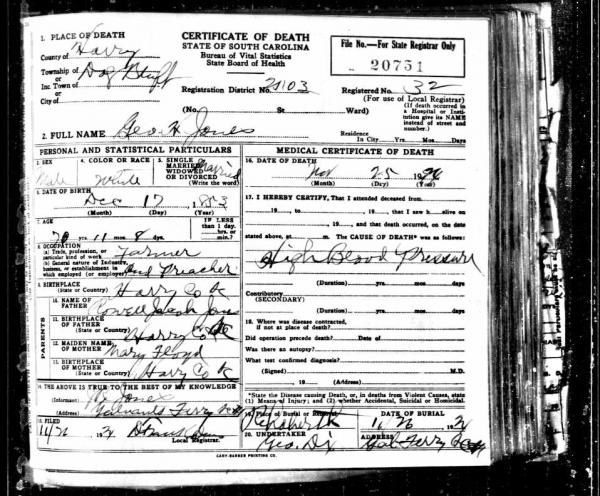 1. PLACE OF DEATH
County of Harry
Township of Dog Bluff
or
Inc. Town of
or
City of
CERTIFICATE OF DEATH
STATE OF SOUTH CAROLINA
Bureau of Vital Statistics
State Board of Health
Registration District No. 2103
(No. St Ward)
File No.—For State Registrar Only
20751
Registered No. 32
(For use of Local Registrar)
(If death occurred in
a Hospital or Insti-
tution give its NAME
instead of street and
number.)
2. FULL NAME Geo. H Jones
Residence
In City Yrs. Mos. Days
PERSONAL AND STATISTICAL PARTICULARS
3. SEX Male
4. COLOR OR RACE White
5. SINGLE
MARRIED
WIDOWED
OR DIVORCED
(Write the word) Married
6. DATE OF BIRTH
Dec 17
(Month) (Day) (Year)
7. AGE
yrs. 11 mos. 8 dys.
IF LESS
than 1 day.
hrs. or
min.?
8. OCCUPATION
(a) Trade, profession, or
particular kind of work Farmer
(b) General nature of Industry,
business, or establishment in
which employed (or employer) and Preacher
9. BIRTHPLACE
(State or Country) Harry Co
PARENTS
10. NAME OF
FATHER
11. BIRTHPLACE
OF FATHER
(State or Country) Harry Co
12. MAIDEN NAME
OF MOTHER Mary Floyd
13. BIRTHPLACE
OF MOTHER
(State or Country) Harry Co
14. THE ABOVE IS TRUE TO THE BEST OF MY KNOWLEDGE
(Informant) Jones
(Address) Galivants Ferry
15. FILED 11/26
Local Registrar.
MEDICAL CERTIFICATE OF DEATH
16. DATE OF DEATH
Nov 25
(Month) (Day) (Year)
17. I HEREBY CERTIFY, That I attended deceased from
19 , to 19 , that I saw h alive on
19 , and that death occurred, on the date
stated above, at m. The CAUSE OF DEATH* was as follows:
High Blood Pressure
(Duration) yrs. mos. days
Contributory
(SECONDARY)
(Duration) yrs. mos. days
18. Where was disease contracted,
if not at place of death?
Did operation precede death? Date of
Was there an autopsy?
What test confirmed diagnosis?
(Signed) M.D.
19 (Address)
*State the Disease causing Death, or, in deaths from Violent Causes, state
(1) Means of Injury; and (2) whether Accidental, Suicidal or Homicidal.
19. Place of Burial or Removal
DATE OF BURIAL
11/26
20. UNDERTAKER
Geo. Dix
ADDRESS
Gal Ferry
CARY-BARKER PRINTING CO.